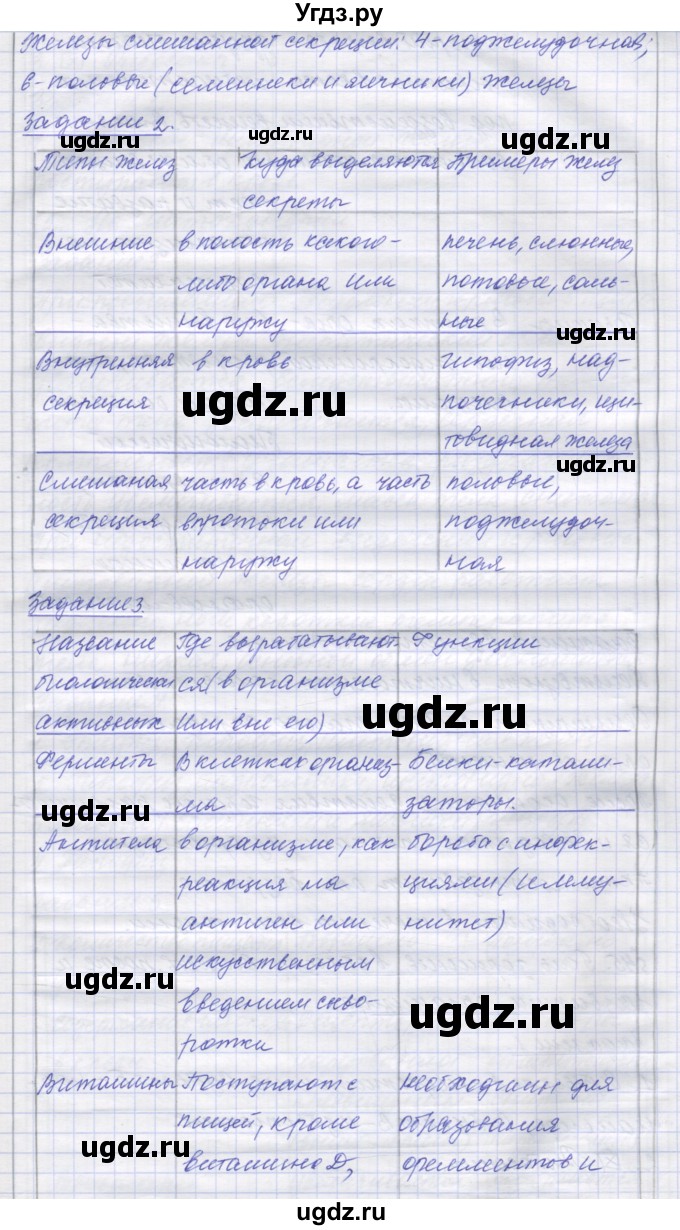 Угдз.ру
Железы смешанной секреции: 4-поджелудочная;
6-половые (семенники и яичники) железы
Задание 2.
Типы желез Куда выделяются Примеры желез
секреты
Внешние в полость какого- печень, слюнные,
либо органа или потовые, саль-
наружу ные
Внутренняя в кровь гипофиз, над-
секреция почечники, щи-
товидная железа
Смешаная часть в кровь, а часть половые,
секреция в протоки или поджелудоч-
наружу ная
Задание 3.
Название Где вырабатывают- Функции
биологически ся (в организме
активных или вне его)
Ферменты В клетках организ- Белки-катали-
ма заторы.
Антитела в организме, как борьба с инфек-
реакция на циями (имму-
антиген или нитет)
искусственным
введением сыво-
ротки
Витамины Поступают с необходимы для
пищей, кроме образования
витамина D, ферментов и
ugdz.ru
ugdz.ru
ugdz.ru
ugdz.ru
ugdz.ru
ugdz.ru
ugdz.ru
ugdz.ru
ugdz.ru
ugdz.ru
ugdz.ru
ugdz.ru